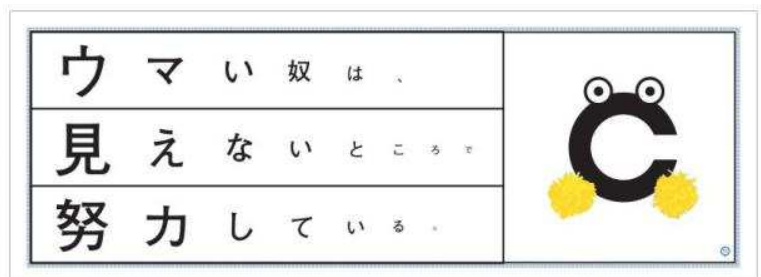 ウマい奴は、
見えないところで
努力している。